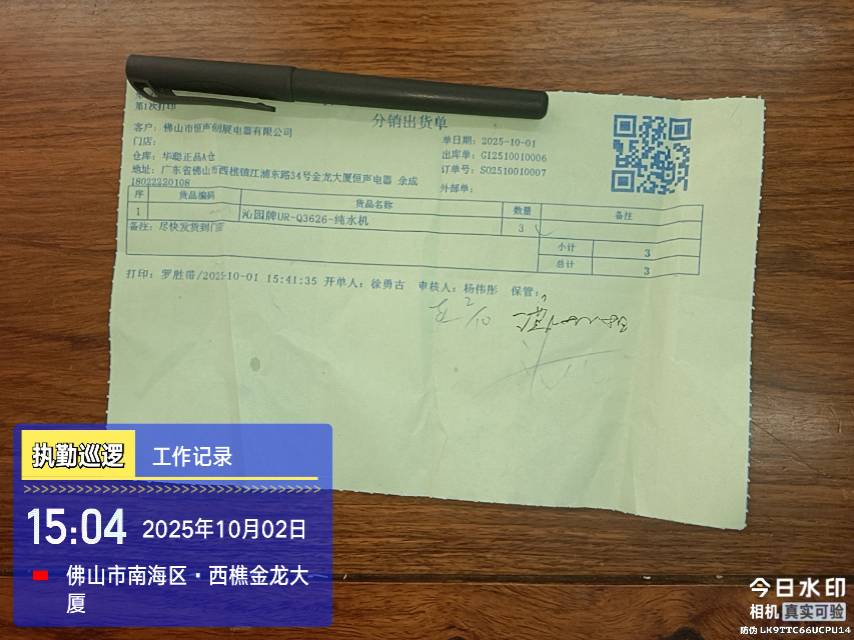 第1次打印
分销出货单
客户: 佛山市恒声创展电器有限公司
单日期: 2025-10-01
门店:
出库单: GI2510010006
仓库: 华聪正品A仓
订单号: SO2510010007
地址: 广东省佛山市西樵镇江浦东路34号金龙大厦恒声电器 余成
18022220108
外部单:
序 货品编码 货品名称 数量 备注
1 沁园牌UR-Q3626-纯水机 3
备注: 尽快发货到门店
小计 3
总计 3
打印: 罗胜带/2025-10-01 15:41:35 开单人: 徐勇古 审核人: 杨伟彤 保管:
执勤巡逻 工作记录
15:04 2025年10月02日
佛山市南海区·西樵金龙大
厦
今日水印
相机 真实可验
防伪 LK9TTC66UCPU14